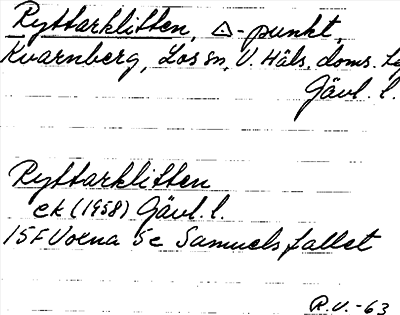 Ryttarklitten, △-punkt,
Kvarnberg, Los sn, V. Häls. doms.
Gävl. l.
Ryttarklitten
ek (1958) Gävl. l.
15F Voxna 5c Samuelsfallet
R.V.-63